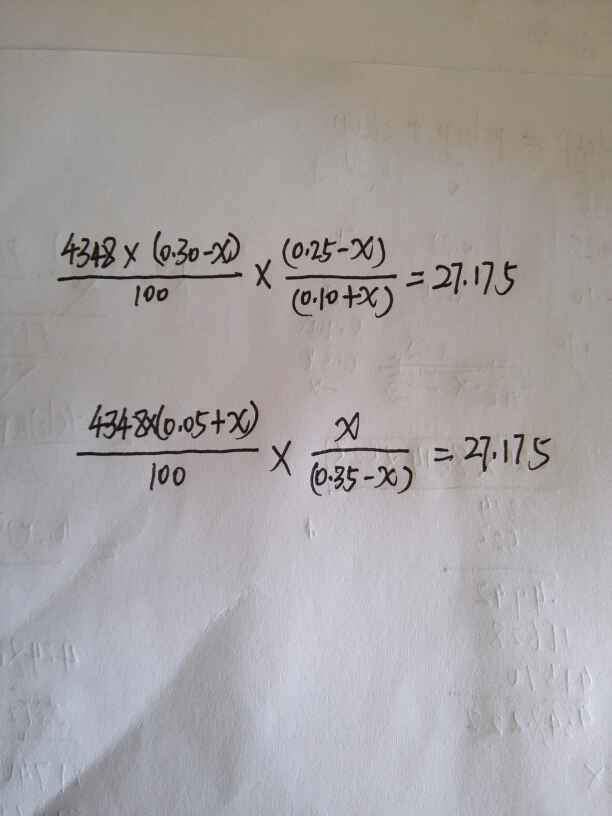 4348 × (0.30-x)/100 × (0.25-x)/(0.10+x) = 27.175
4348×(0.05+x)/100 × x/(0.35-x) = 27.175